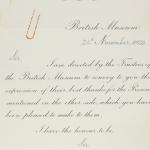 British Museum
25 November, 1922
Sir,
I am directed by the Trustees of
the British Museum to convey to you the
expression of their best thanks for the Present
mentioned on the other side, which you have
been pleased to make to them.
I have the honour to be,
Sir,